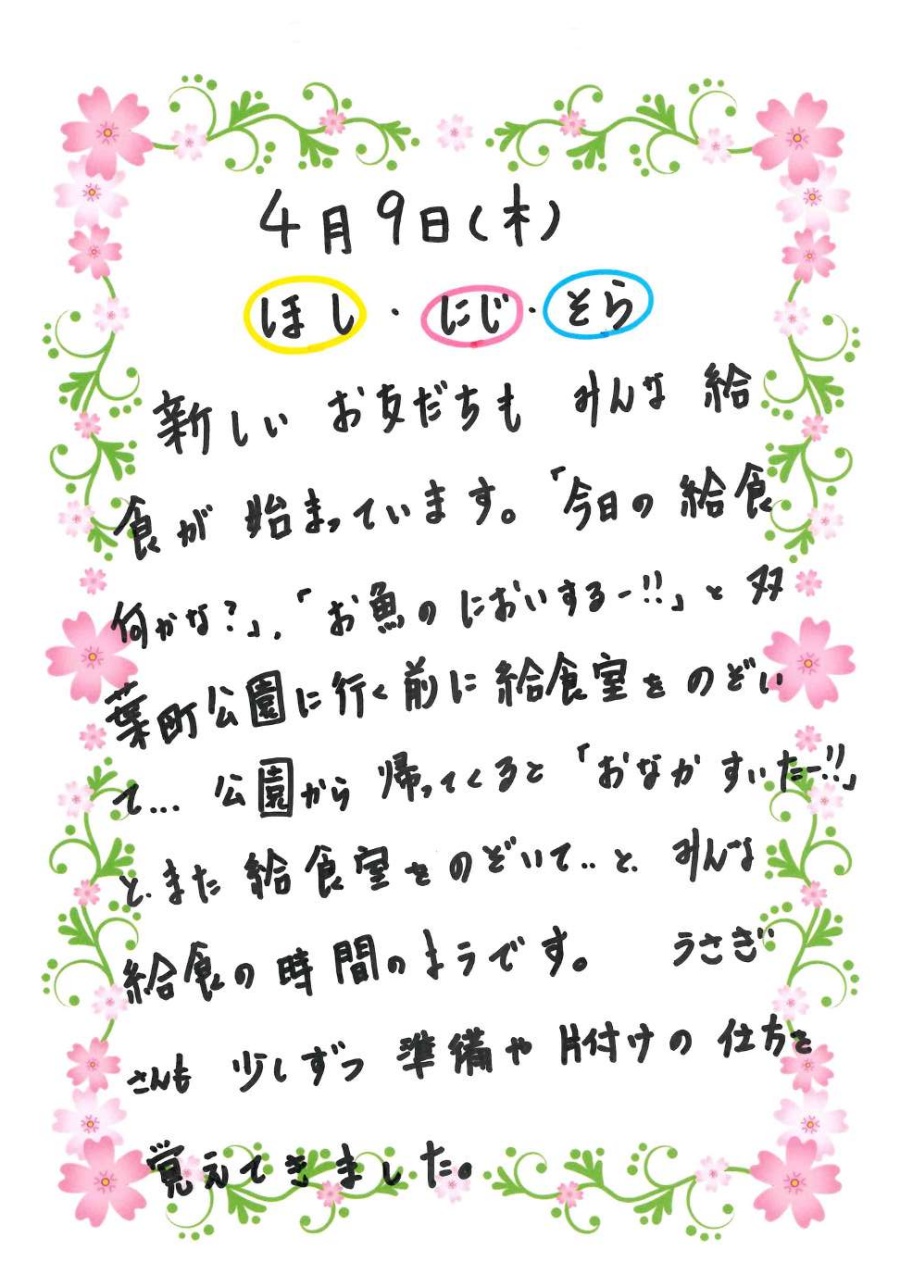 4月9日(木)
ほし・にじ・そら
新しい お友だちも みんな 給
食が 始まっています。「今日の 給食
何かな?」、「お魚の においするー!!」と 双
葉町公園に行く前に給食室を のぞい
て… 公園から 帰ってくると「おなか すいたー!!」
と、また 給食室を のぞいて‥と、みんな
給食の 時間のようです。 うさぎ
さんも 少しずつ 準備や 片付けの 仕方を
覚えてきました。